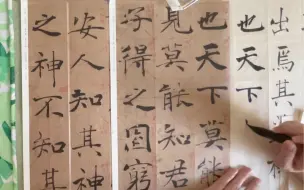 出焉其
也天下
也天下莫能
見莫能知君
子得之固窮
安人知其神
之神不知其